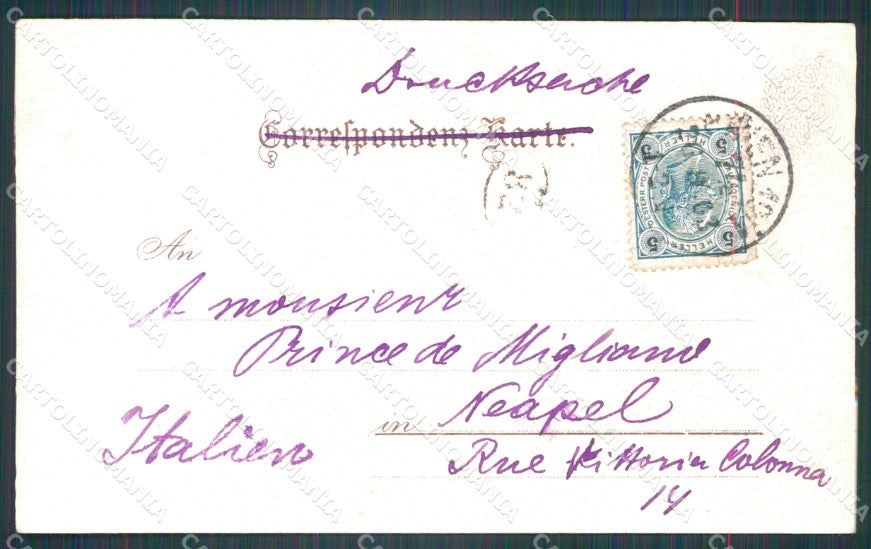 Drucksache
Correspondenz-Karte.
An
A monsieur
Prince de Migliano
in Neapel
Italien
Rue Vittoria Colonna
14
5 HELLER 5
5 HELLER 5
WIEN
CARTOLINOMANIA